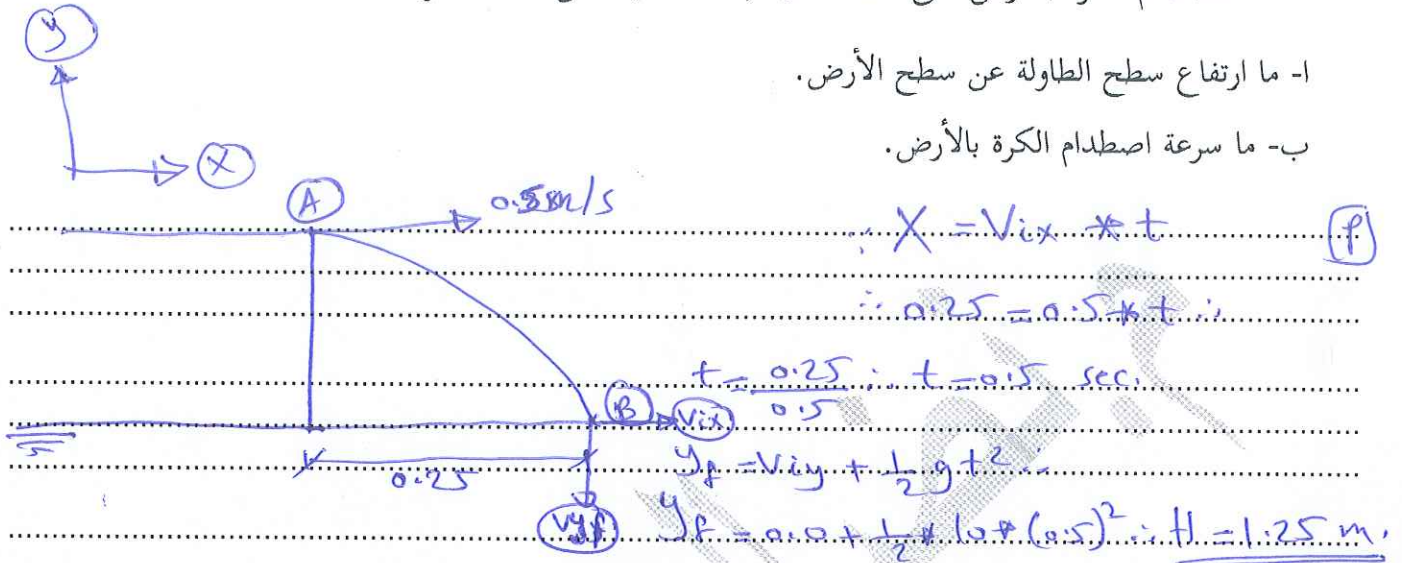 ا- ما ارتفاع سطح الطاولة عن سطح الأرض.
ب- ما سرعة اصطدام الكرة بالأرض.
y
X
A
0.5m/s
∴ X = Vix * t
∴ 0.25 = 0.5 * t ∴
t = 0.25/0.5 ∴ t = 0.5 sec.
B
Vix
0.25
yf = Viy + 1/2 g t² ∴
Vyf
yf = 0.0 + 1/2 * 10 * (0.5)² ∴ H = 1.25 m.